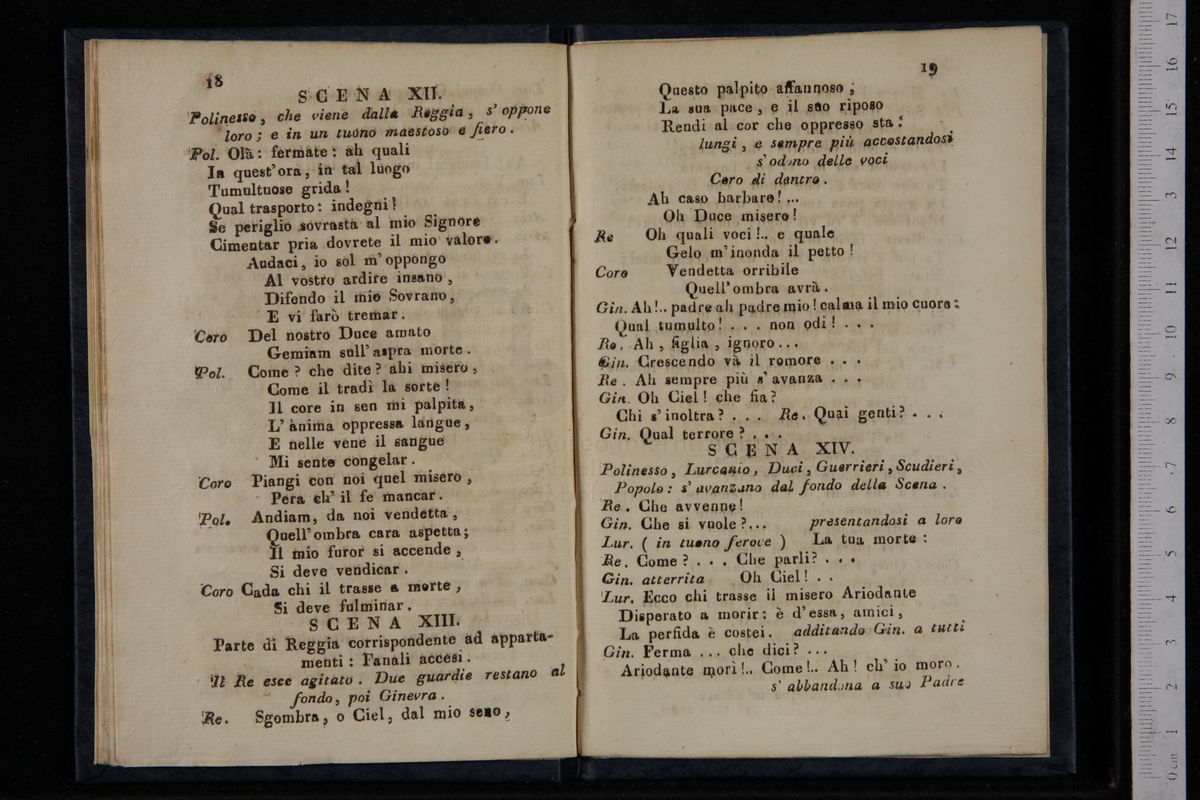 18
SCENA XII.
Polinesso, che viene dalla Reggia, s' oppone
loro; e in un tuono maestoso e fiero.
Pol. Olà: fermate: ah quali
In quest' ora, in tal luogo
Tumultuose grida!
Qual trasporto: indegni!
Se periglio sovrasta al mio Signore
Cimentar pria dovrete il mio valore.
Audaci, io sol m' oppongo
Al vostro ardire insano,
Difendo il mio Sovrano,
E vi farò tremar.
Coro Del nostro Duce amato
Gemiam sull' aspra morte.
Pol. Come? che dite? ahi misero,
Come il tradì la sorte!
Il core in sen mi palpita,
L' anima oppressa langue,
E nelle vene il sangue
Mi sento congelar.
Coro Piangi con noi quel misero,
Pera ch' il fe mancar.
Pol. Andiam, da noi vendetta,
Quell' ombra cara aspetta;
Il mio furor si accende,
Si deve vendicar.
Coro Cada chi il trasse a morte,
Si deve fulminar.
SCENA XIII.
Parte di Reggia corrispondente ad apparta-
menti: Fanali accesi.
Il Re esce agitato. Due guardie restano al
fondo, poi Ginevra.
Re. Sgombra, o Ciel, dal mio seno,
19
Questo palpito affannoso;
La sua pace, e il suo riposo
Rendi al cor che oppresso sta:
lungi, e sempre più accostandosi
s' odono delle voci
Coro di dentro.
Ah caso barbaro! ...
Oh Duce misero!
Re Oh quali voci!.. e quale
Gelo m' inonda il petto!
Coro Vendetta orribile
Quell' ombra avrà.
Gin. Ah!.. padre ah padre mio! calma il mio cuore:
Qual tumulto! . . . non odi! . . .
Re. Ah, figlia, ignoro...
Gin. Crescendo và il romore . . .
Re. Ah sempre più s' avanza . . .
Gin. Oh Ciel! che fia?
Chi s' inoltra? . . . Re. Quai genti? . . .
Gin. Qual terrore? . . .
SCENA XIV.
Polinesso, Lurcanio, Duci, Guerrieri, Scudieri,
Popolo: s' avanzano dal fondo della Scena.
Re. Che avvenne!
Gin. Che si vuole?... presentandosi a loro
Lur. ( in tuono feroce ) La tua morte:
Re. Come? . . . Che parli? . . .
Gin. atterrita Oh Ciel! . .
Lur. Ecco chi trasse il misero Ariodante
Disperato a morir: è d' essa, amici,
La perfida è costei. additando Gin. a tutti
Gin. Ferma ... che dici? ...
Ariodante morì!.. Come!.. Ah! ch' io moro.
s' abbandona a suo Padre
0 cm 1 2 3 4 5 6 7 8 9 10 11 12 13 14 15 16 17